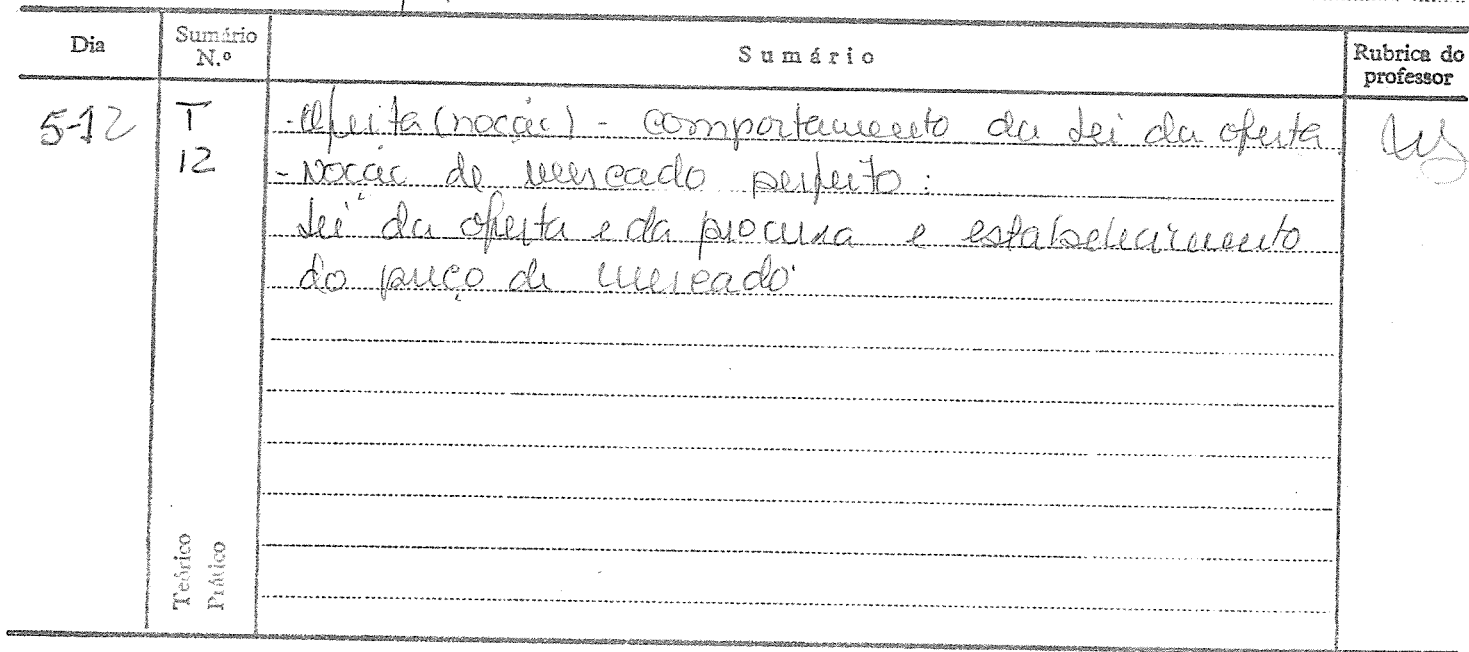 Dia Sumário N.º Sumário Rubrica do professor
5-12 T 12
- Oferta (noção) - comportamento da Lei da oferta
- Noção de mercado perfeito:
Lei da oferta e da procura e estabelecimento
do preço de mercado.
Teórico
Prático